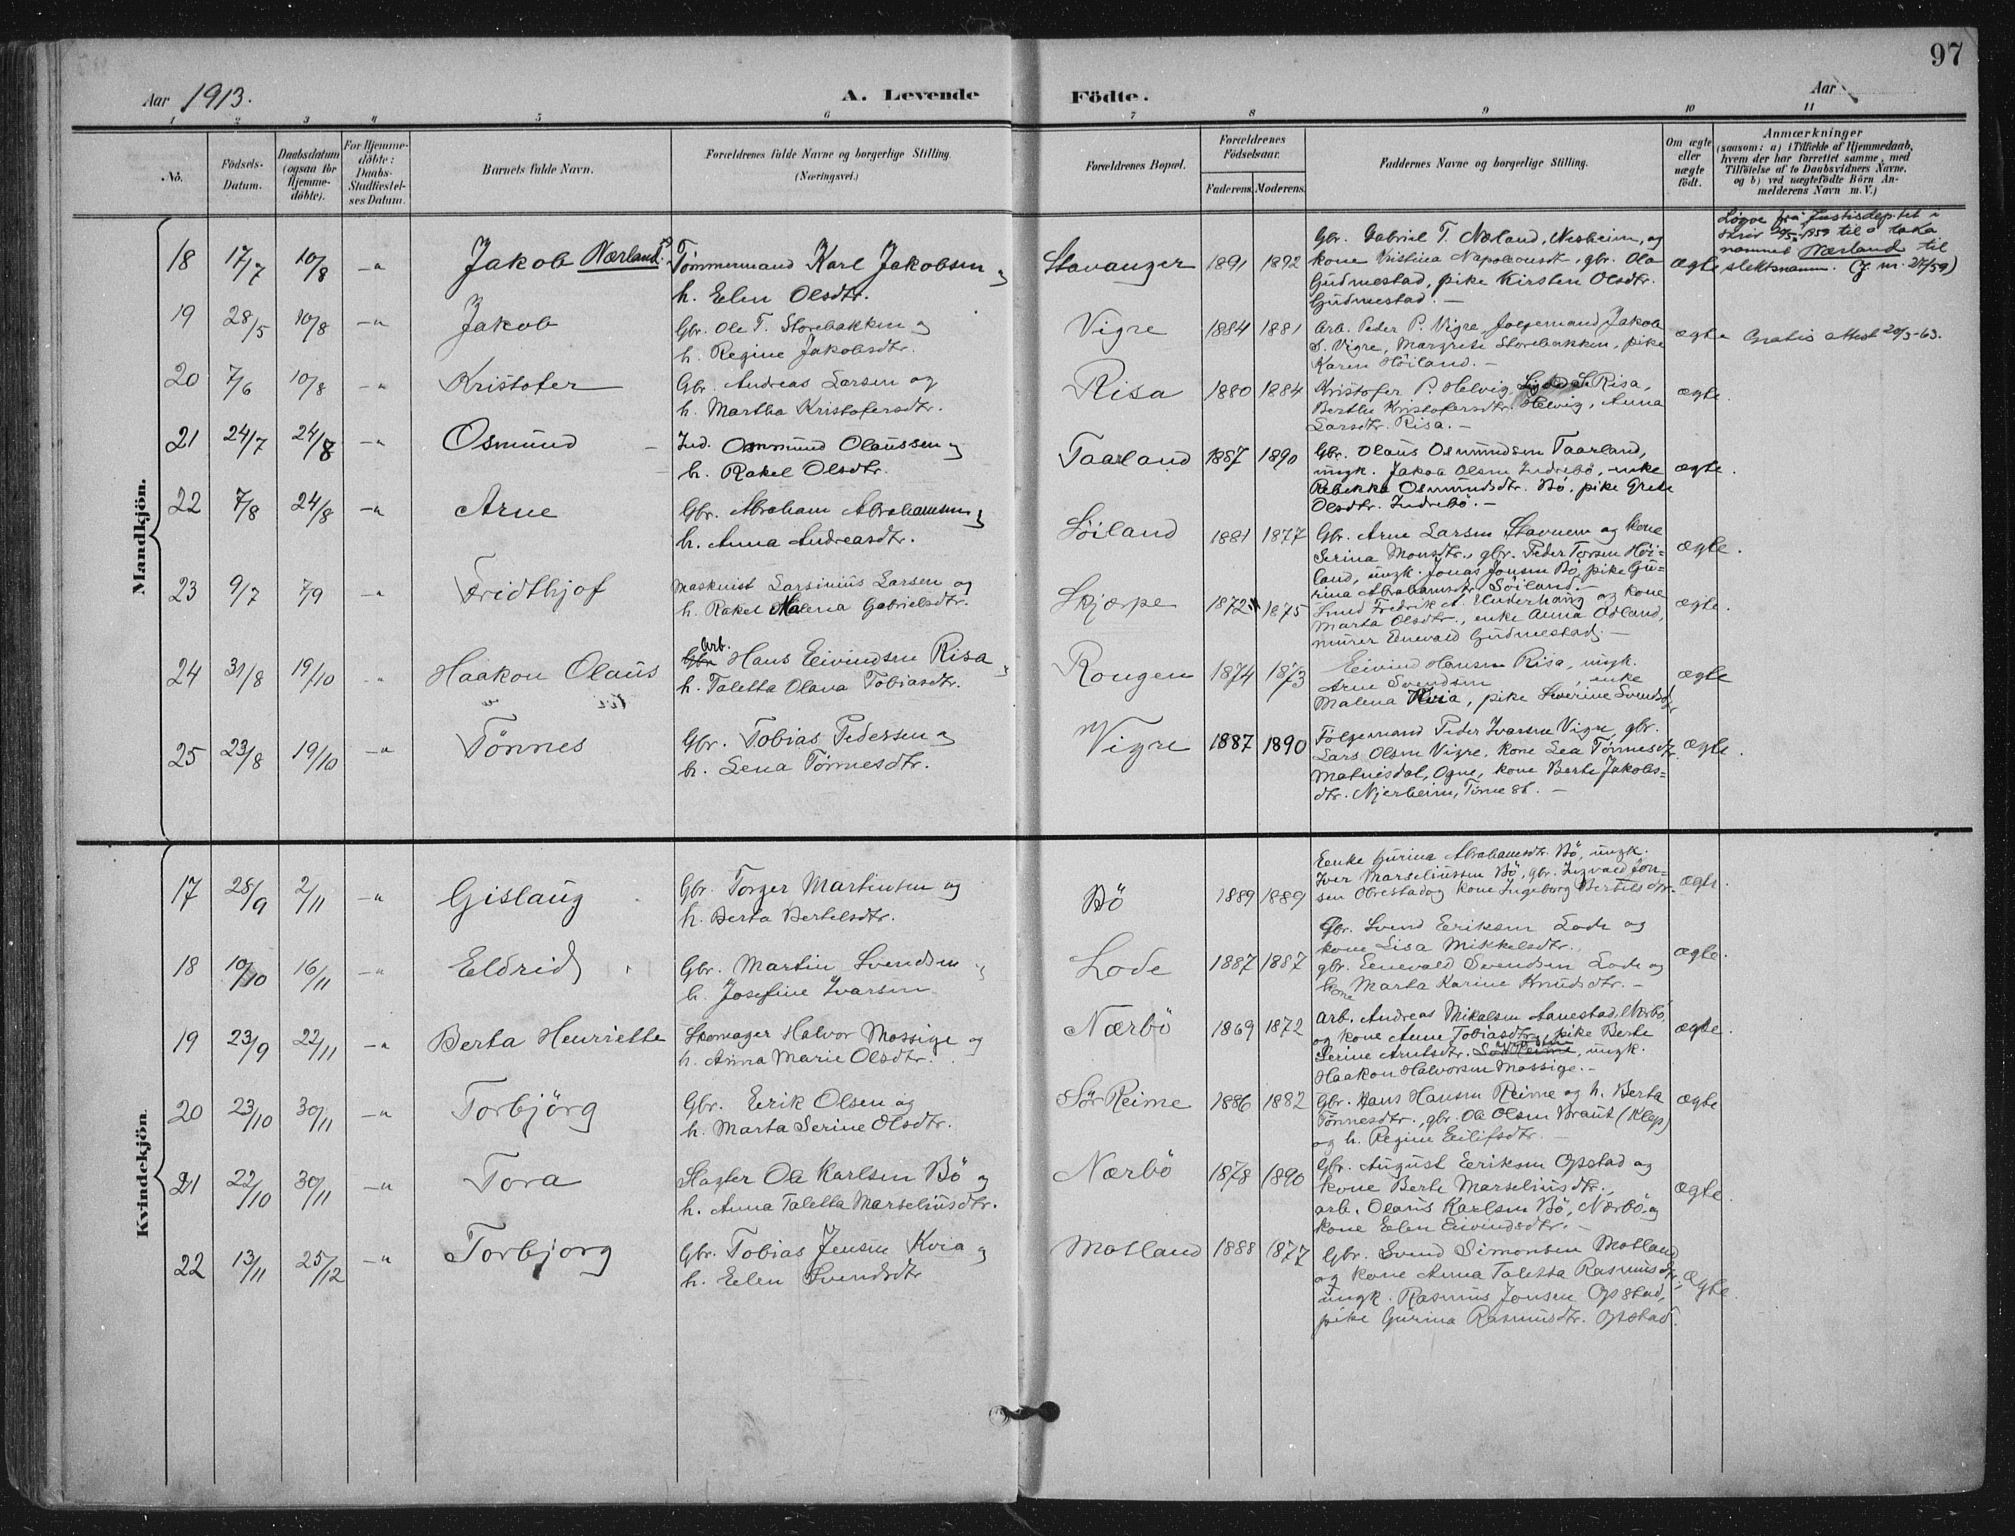 97
Aar 1913. A. Levende Födte. Aar
1 2 3 4 5 6 7 8 9 10 11
No. Födsels-Datum. Daabsdatum (ogsaa for Hjemme-döbte). For Hjemme-döbte: Daabs-Stadfæstel-ses Datum. Barnets fulde Navn. Forældrenes fulde Navne og borgerlige Stilling. (Næringsvei.) Forældrenes Bopæl. Forældrenes Födselsaar. Faderens. Moderens. Faddernes Navne og borgerlige Stilling. Om ægte eller uægte födt. Anmærkninger (saasom: a) i Tilfælde af Hjemmedaab, hvem der har forrettet samme, med Tilföielse af to Daabsvidners Navne, og b) ved uægtefödte Börn An-melderens Navn m. V.)
Mandkjön.
18 17/7 10/8 -"- Jakob Nærland Tömmermand Karl Jakobsen og
h. Elen Olsdtr.
Stavanger 1891 1892
Gbr. Gabriel T. Næland, Nesheim, og
kone Kristina Napoleonsdt., gbr. Ola
Gudmestad, pike Kirsten Olsdtr.
Gudmestad. -
ægte
Løyve frå Justisdep.tet i
skriv 20/5-1959 til å taka
namnet Nærland til
slektsnamn. (J. nr. 27/59)
19 28/5 10/8 -"- Jakob Gbr. Ole T. Storebakken og
h. Regine Jakobsdtr.
Vigre 1884 1881
Arb. Peder P. Vigre, Folgemand Jakob
S. Vigre, Margrete Storebakken, pike
Karen Höiland. -
ægte Gratis attest 20/3-63.
20 7/6 10/8 -"- Kristofer Gbr. Andreas Larsen og
h. Martha Kristofersdtr.
Risa 1880 1884
Kristofer P. Helvig, Risa,
Berthe Kristofersdtr. Helvig, Anna
Larsdtr. Risa. -
ægte.
21 24/7 24/8 -"- Osmund Ind. Osmund Olaussen og
h. Rakel Olsdtr.
Taarland 1887 1890
Gbr. Olaus Osmundsen Taarland,
ungk. Jakob Olsen Indrebö, enke
Rebekka Osmundsdtr. Bö, pike Grete
Olsdtr. Indrebö. -
ægte.
22 7/8 24/8 -"- Arne Gbr. Abraham Abrahamsen og
h. Anna Andreasdtr.
Söiland 1881 1877
Gbr. Arne Larsen Stavnem og kone
Serina Monsdtr., gbr. Peder Torsen Höi-
land, ungk. Jonas Jonsen Bö, pike Gu-
rina Abrahamsdtr. Söiland. -
ægte.
23 9/7 7/9 -"- Fridthjof Maskinist Larsinius Larsen og
h. Rakel Malena Gabrielsdtr.
Skjærpe 1872 1875
Smed Fredrik A. Underhaug og kone
Marta Olsdtr., enke Anna Ödland,
murer Enevald Gudmestad. -
ægte.
24 31/8 19/10 " Haakon Olaus Gbr Arb. Hans Eivindsen Risa og
h. Taletta Olava Tobiasdtr.
Rongen 1874 1873
Eivind Hansen Risa, ungk.
Arne Svendsen , enke
Malena Kvia, pike Severine Svendsdtr
ægte
25 23/8 19/10 -"- Tönnes Gbr. Tobias Pedersen og
h. Lena Tönnesdtr.
Vigre 1887 1890
Folgemand Peder Ivarsen Vigre, gbr.
Lars Olsen Vigre, kone Lea Tönnesdtr.
Matnisdal, Ogne, kone Berte Jakobs-
dtr. Njerheim, Time st. -
ægte.
Kvindekjön.
17 28/9 2/11 -"- Gislaug Gbr. Torger Martinsen og
h. Berta Bertelsdtr.
Bö 1889 1889
Enke Gurina Abrahamsdtr. Bö, ungk.
Iver Marseliussen Bö, gbr. Ingvald Jon-
sen Obrestad og kone Ingeborg Bertelsdtr.
ægte.
18 10/10 16/11 -"- Eldrid Gbr. Martin Svendsen og
h. Josefine Ivarsen
Lode 1887 1887
Gbr. Svend Eriksen Lode og
kone Lisa Mikkelsdtr.
gbr. Enevald Svendsen Lode og
kone Marta Karine Knudsdtr. -
ægte.
19 23/9 22/11 -"- Berta Henriette Skomager Halvor Mossige og
h. Anna Marie Olsdtr.
Nærbö 1869 1872
Arb. Andreas Mikalsen Aanestad, Nærbö,
og kone Anne Tobiasdtr., pike Berte
Serine Arntsdtr. Sör Reime, ungk.
Haakon Halvorsen Mossige. -
ægte.
20 23/10 30/11 -"- Torbjörg Gbr. Erik Olsen og
h. Marta Serine Olsdtr.
Sör Reime 1886 1882
Gbr. Hans Hansen Reime og h. Berta
Tönnesdtr., gbr. Ole Olsen Braut (Klep)
og h. Regine Eilifsdtr. -
ægte
21 22/10 30/11 -"- Tora Slagter Ole Karlsen Bö og
h. Anna Taletta Marseliusdtr.
Nærbö 1878 1890
Gbr. August Eriksen Opstad og
kone Berte Marseliusdtr.,
arb. Olaus Karlsen Bö, Nærbö og
kone Elen Eivindsdtr. -
ægte.
22 13/11 25/12 -"- Torbjorg Gbr. Tobias Jensen Kvia og
h. Elen Svendsdtr
Motland 1888 1877
Gbr. Svend Simonsen Motland
og kone Anna Taletta Rasmusdtr.,
ungk. Rasmus Jonsen Opstad,
pike Gurina Rasmusdtr. Opstad.
ægte.